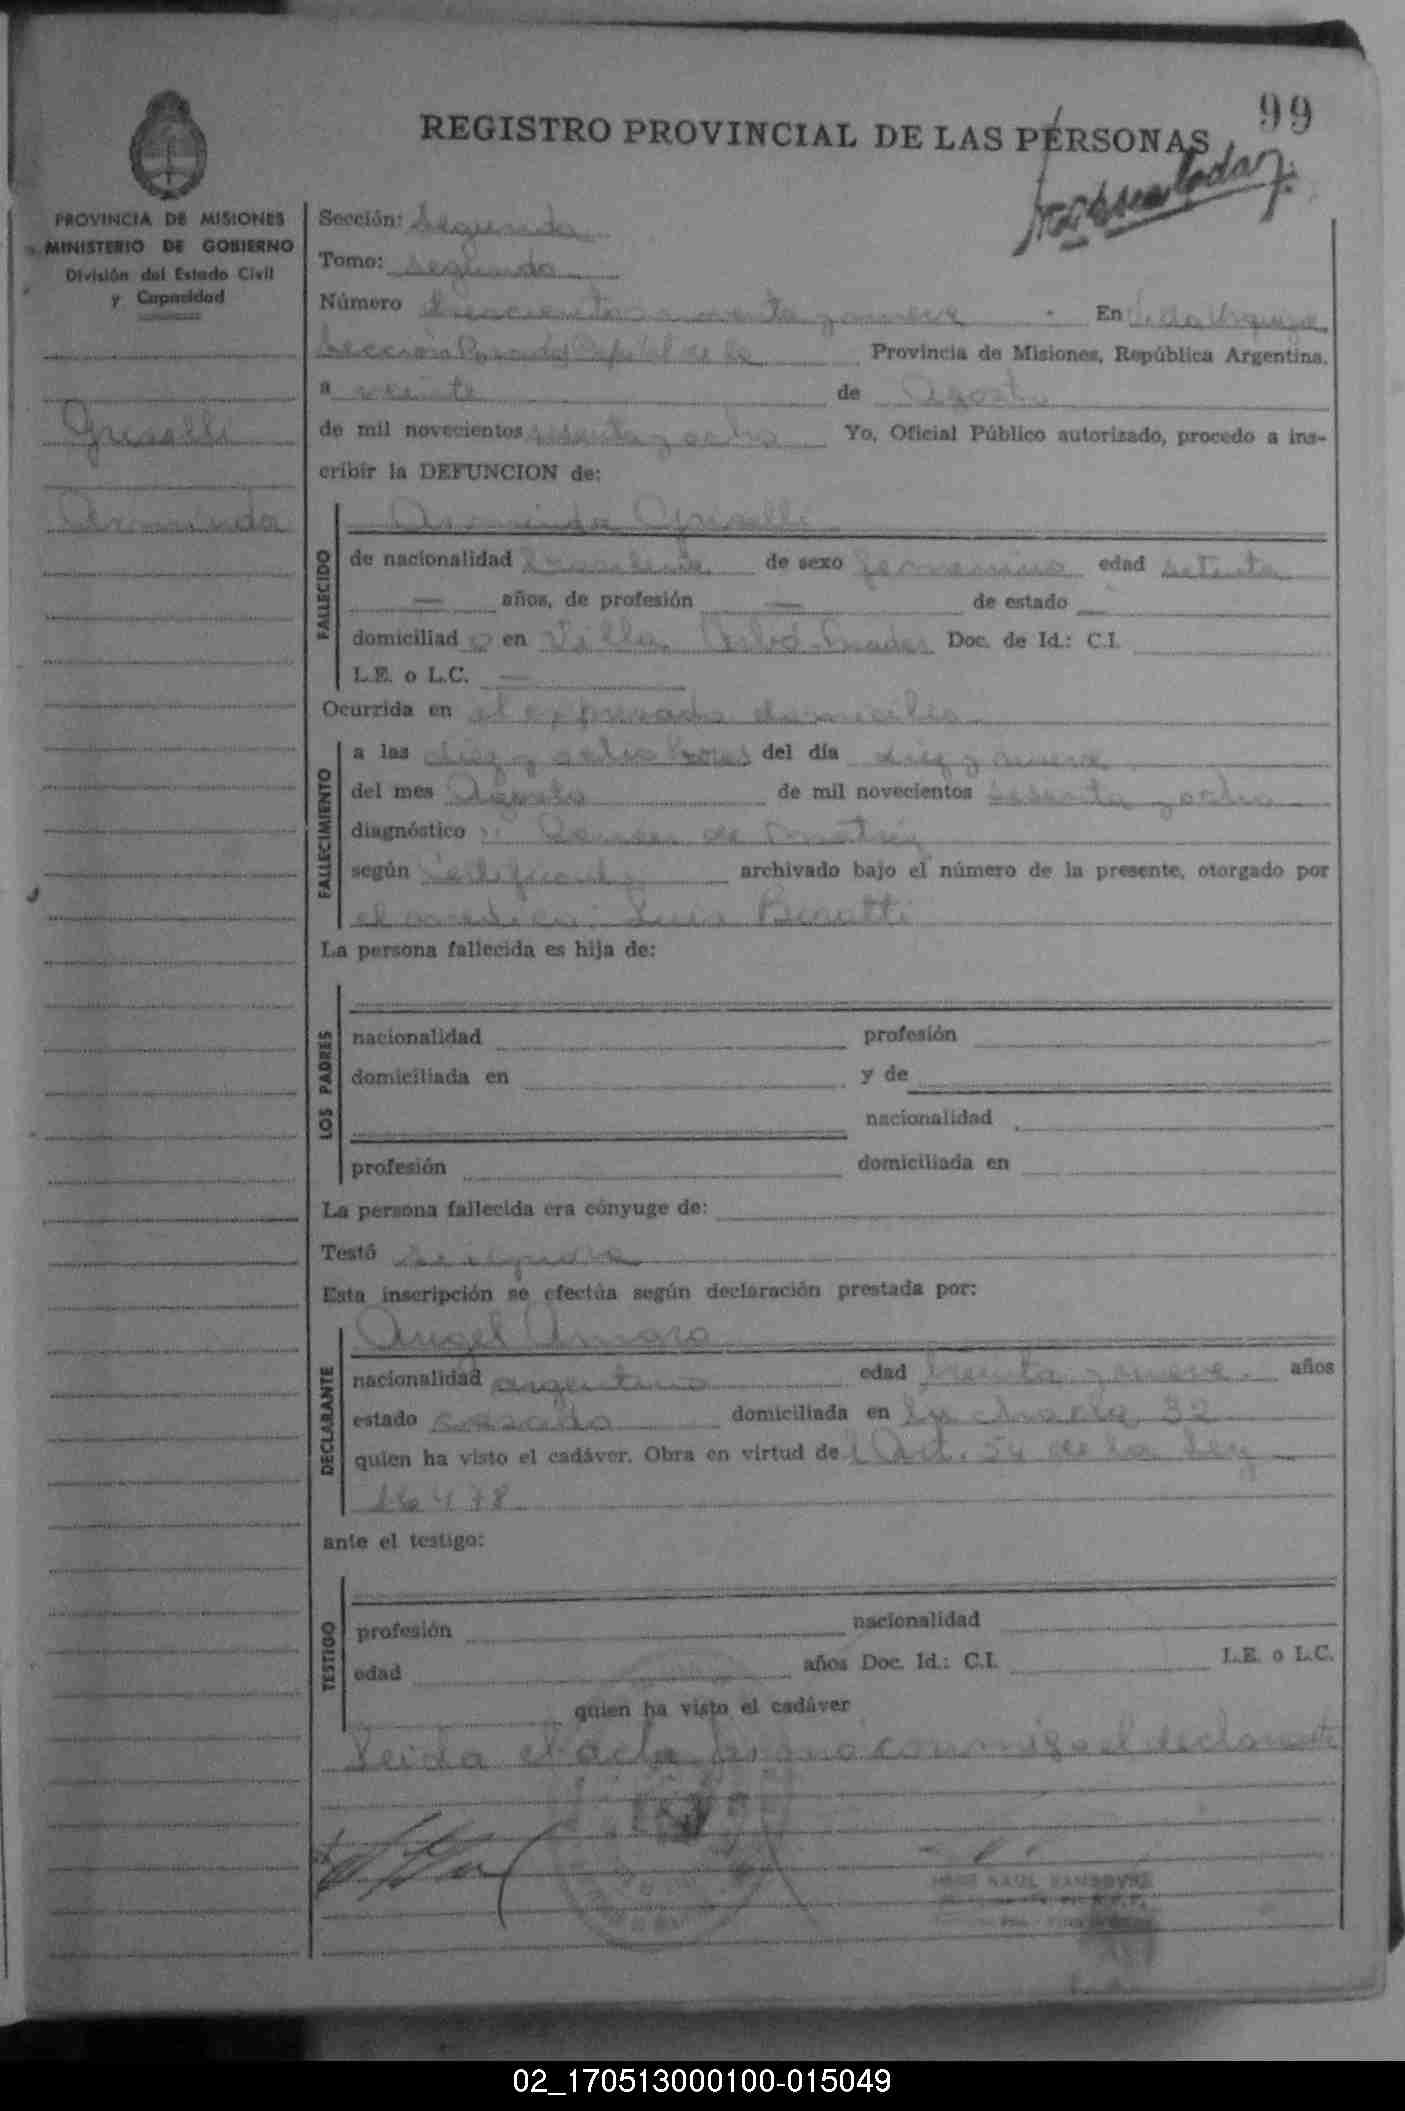 99
REGISTRO PROVINCIAL DE LAS PERSONAS
PROVINCIA DE MISIONES
MINISTERIO DE GOBIERNO
División del Estado Civil
y Capacidad
Griselli
Arminda
Sección: Segunda
Tomo: Segundo
Número noventa y nueve En Villa Urquiza
Sección Posadas Capital de la Provincia de Misiones, República Argentina,
a veinte de Agosto
de mil novecientos sesenta y ocho Yo, Oficial Público autorizado, procedo a ins-
cribir la DEFUNCION de:
FALLECIDO
Arminda Griselli
de nacionalidad brasileña de sexo femenino edad setenta
— años, de profesión — de estado —
domiciliad o en Villa Doc. de Id.: C.I.
L.E. o L.C. —
Ocurrida en el expresado domicilio
FALLECIMIENTO
a las diez y ocho horas del día diez y nueve
del mes Agosto de mil novecientos sesenta y ocho
diagnóstico : Cancer de matriz
según certificado archivado bajo el número de la presente, otorgado por
el medico: Luis
La persona fallecida es hija de:
LOS PADRES
nacionalidad profesión
domiciliada en y de
nacionalidad
profesión domiciliada en
La persona fallecida era cónyuge de:
Testó se ignora
Esta inscripción se efectúa según declaración prestada por:
DECLARANTE
Angel Amaro
nacionalidad argentino edad treinta y nueve años
estado casado domiciliada en 32
quien ha visto el cadáver. Obra en virtud de l Art. 54 de la Ley
16478
ante el testigo:
TESTIGO
profesión nacionalidad
edad años Doc. Id.: C.I. L.E. o L.C.
quien ha visto el cadáver
Leida el acta firmó conmigo el declarante
RAUL
02_170513000100-015049